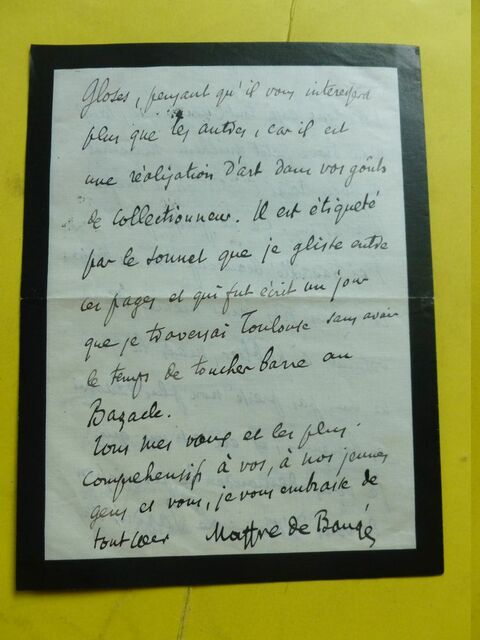 Gloses, pensant qu'il vous intéressera
plus que les autres, car il est
une réalisation d'art dans vos goûts
de collectionneur. Il est étiqueté
par le sonnet que je glisse entre
ces pages et qui fut écrit un jour
que je traversai Toulouse sans avoir
le temps de toucher barre au
Bazacle.
Tous mes vœux et les plus
compréhensifs à vos, à nos jeunes
gens et vous, je vous embrasse de
tout cœur Maffre de Baugé